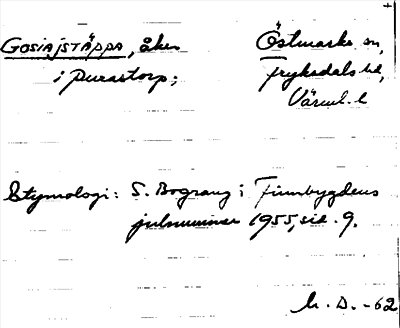 Gosiajstäppa, åker
i Purastorp;
Östmarks sn,
Fryksdals hd,
Värml. l
Etymologi: S. Bograng i Finnbygdens
julnummer 1955, sid. 9.
D. -62